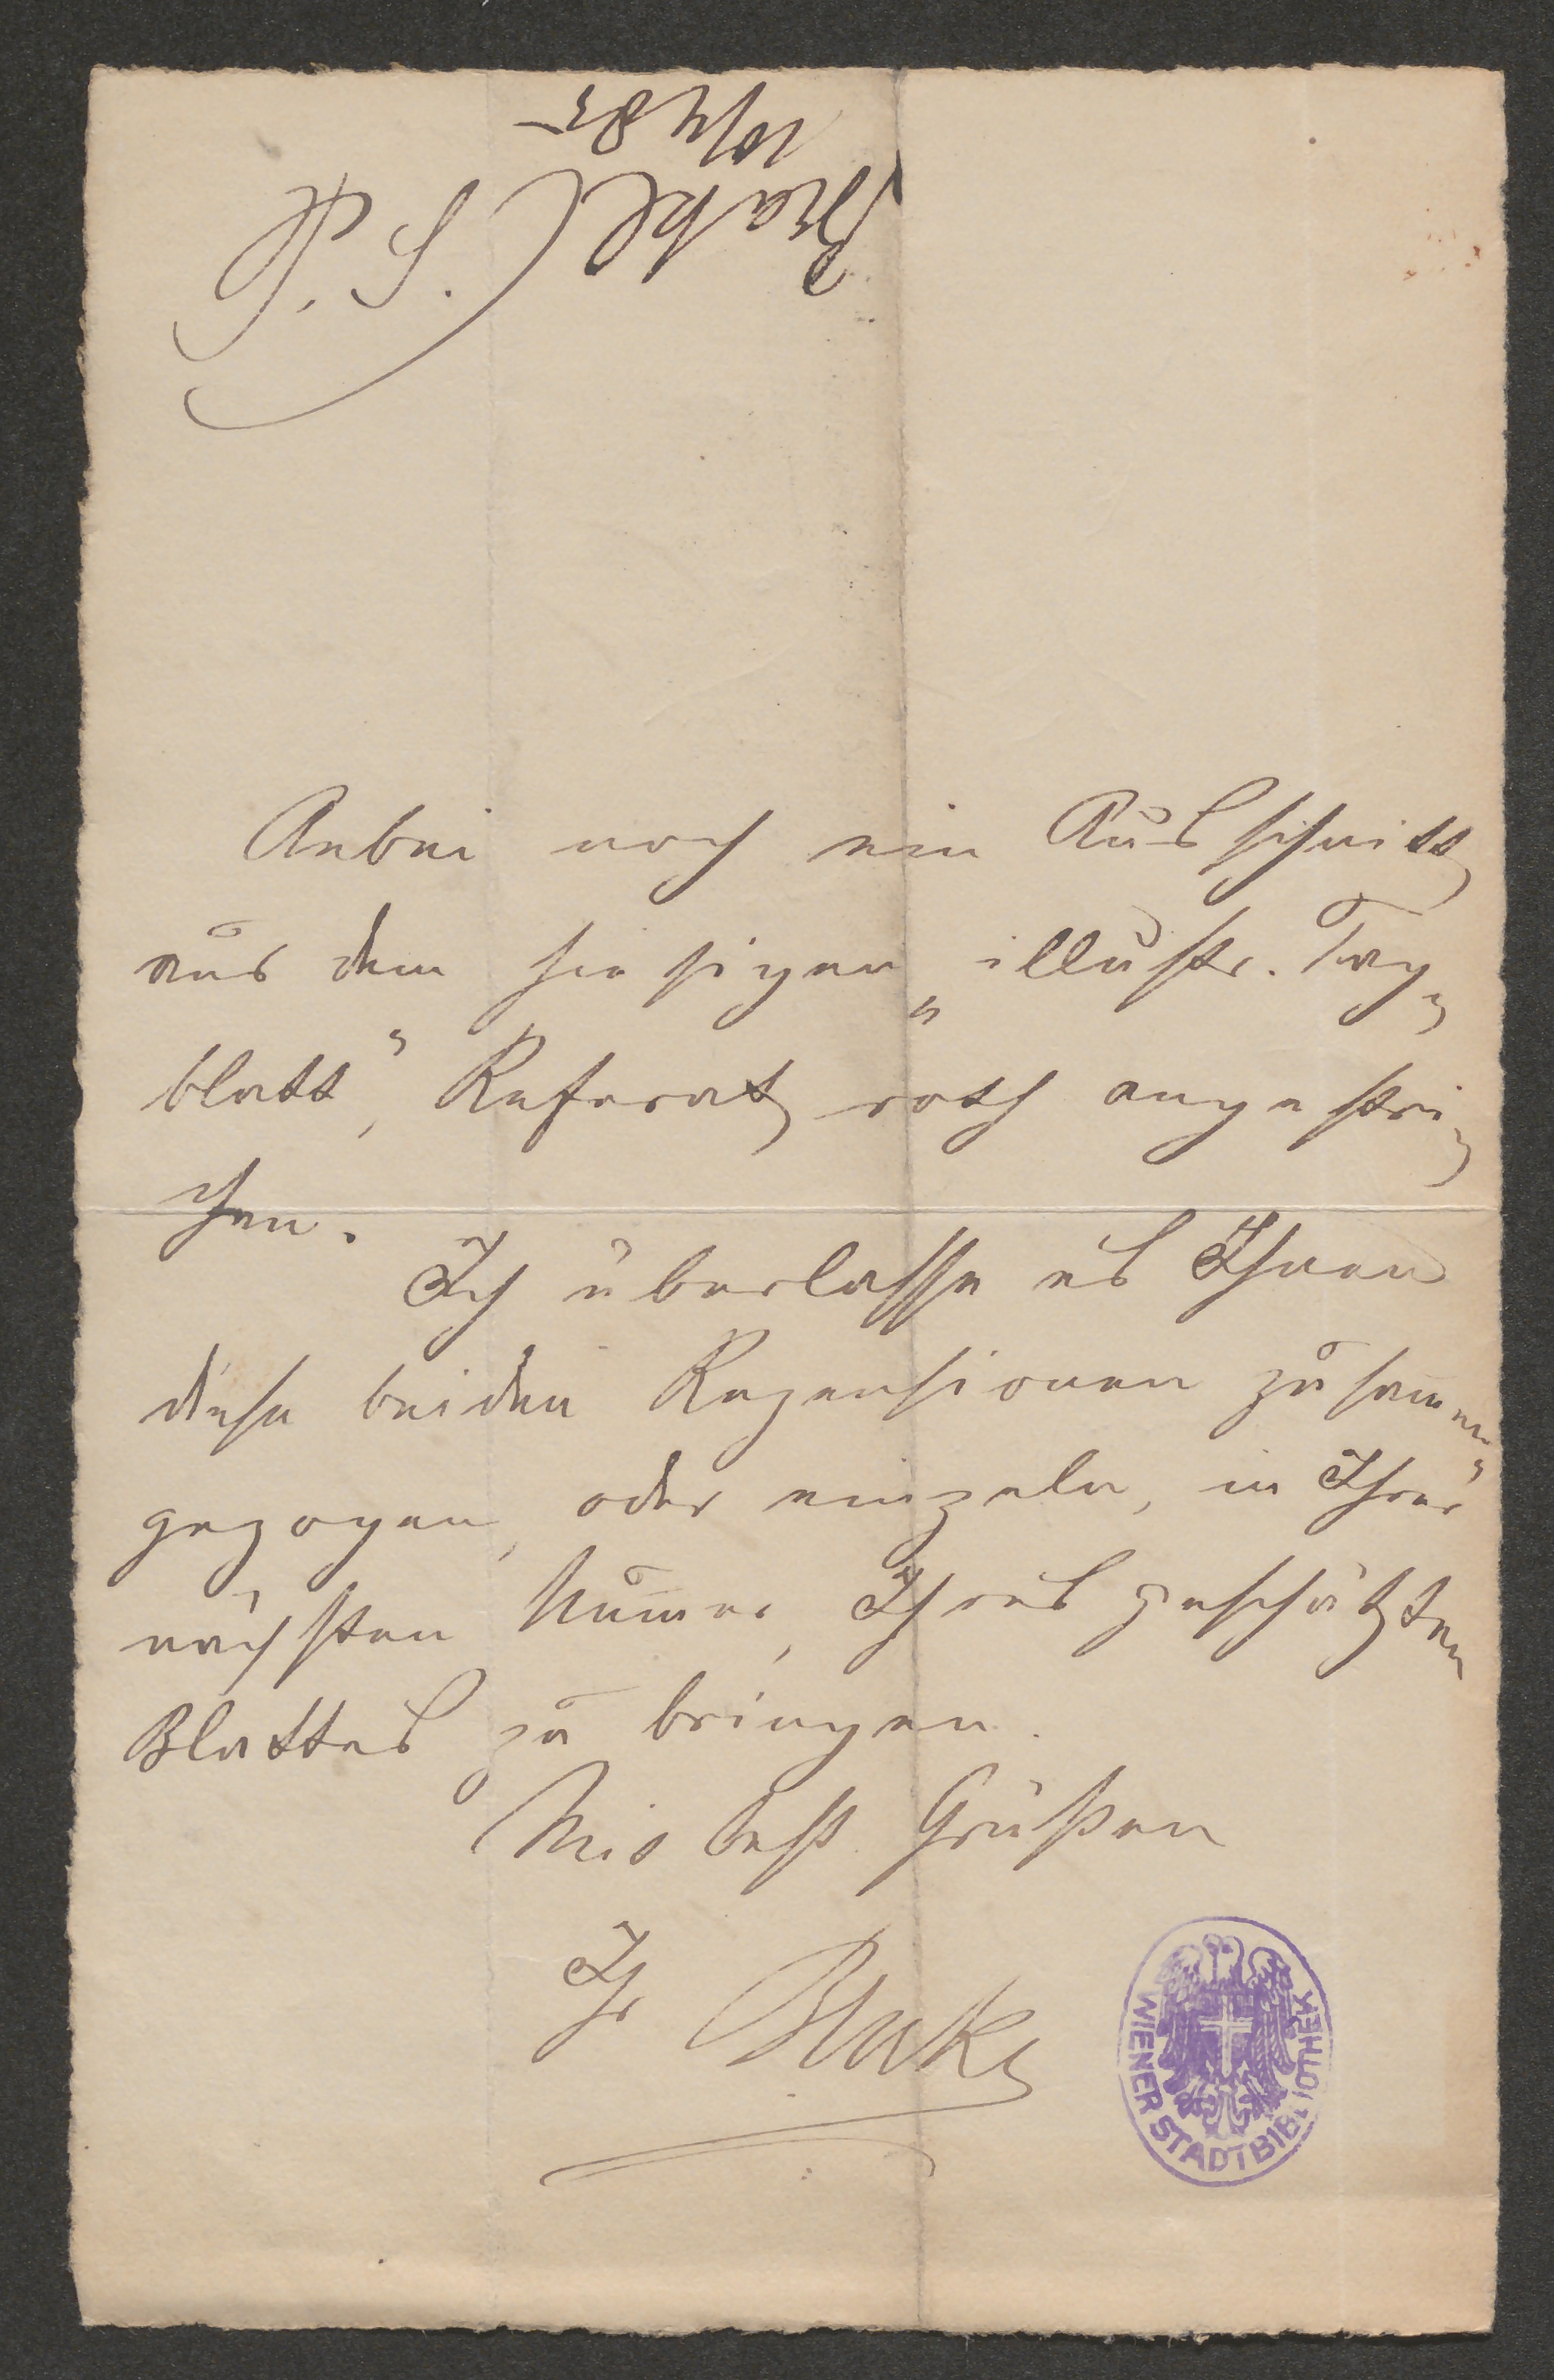 P. S.
Anbei noch ein Ausschnitt
aus dem hiesigen „illustr. Tag-
blatt", Referat roth angestri-
chen.
Ich überlasse es Ihnen
diese beiden Rezensionen zusammen-
gezogen, oder einzeln, in Ihrer
nächsten Nummer, Ihres geschätzten
Blattes zu bringen.
Mit best. Grüßen
Ihr
WIENER STADTBIBLIOTHEK